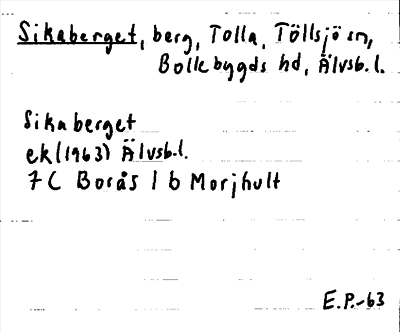 Sikaberget, berg, Tolla, Töllsjö sn,
Bollebygds hd, Älvsb.l.
Sikaberget
ek(1963) Älvsb.l.
7C Borås 1 b Morjhult
E.P.-63